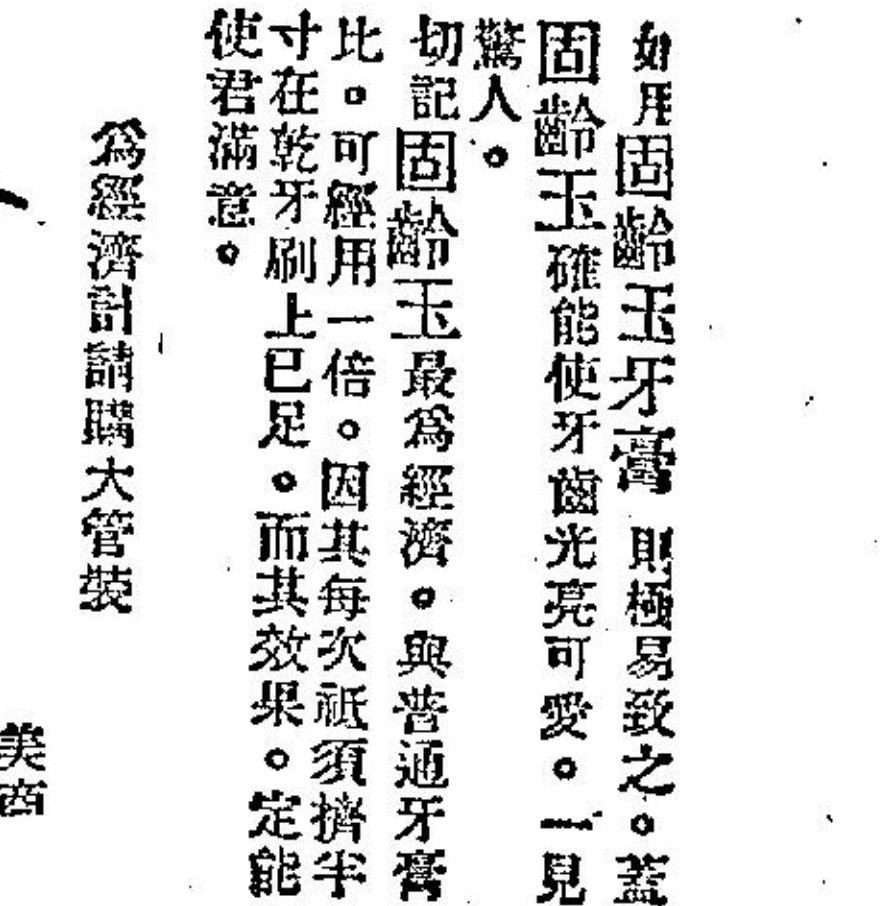 如用固齡玉牙膏則極易致之。蓋
固齡玉確能使牙齒光亮可愛。一見
驚人。
切記固齡玉最爲經濟。與普通牙膏
比。可經用一倍。因其每次祇須擠半
寸在乾牙刷上已足。而其效果。定能
使君滿意。
爲經濟計請購大管裝
美商